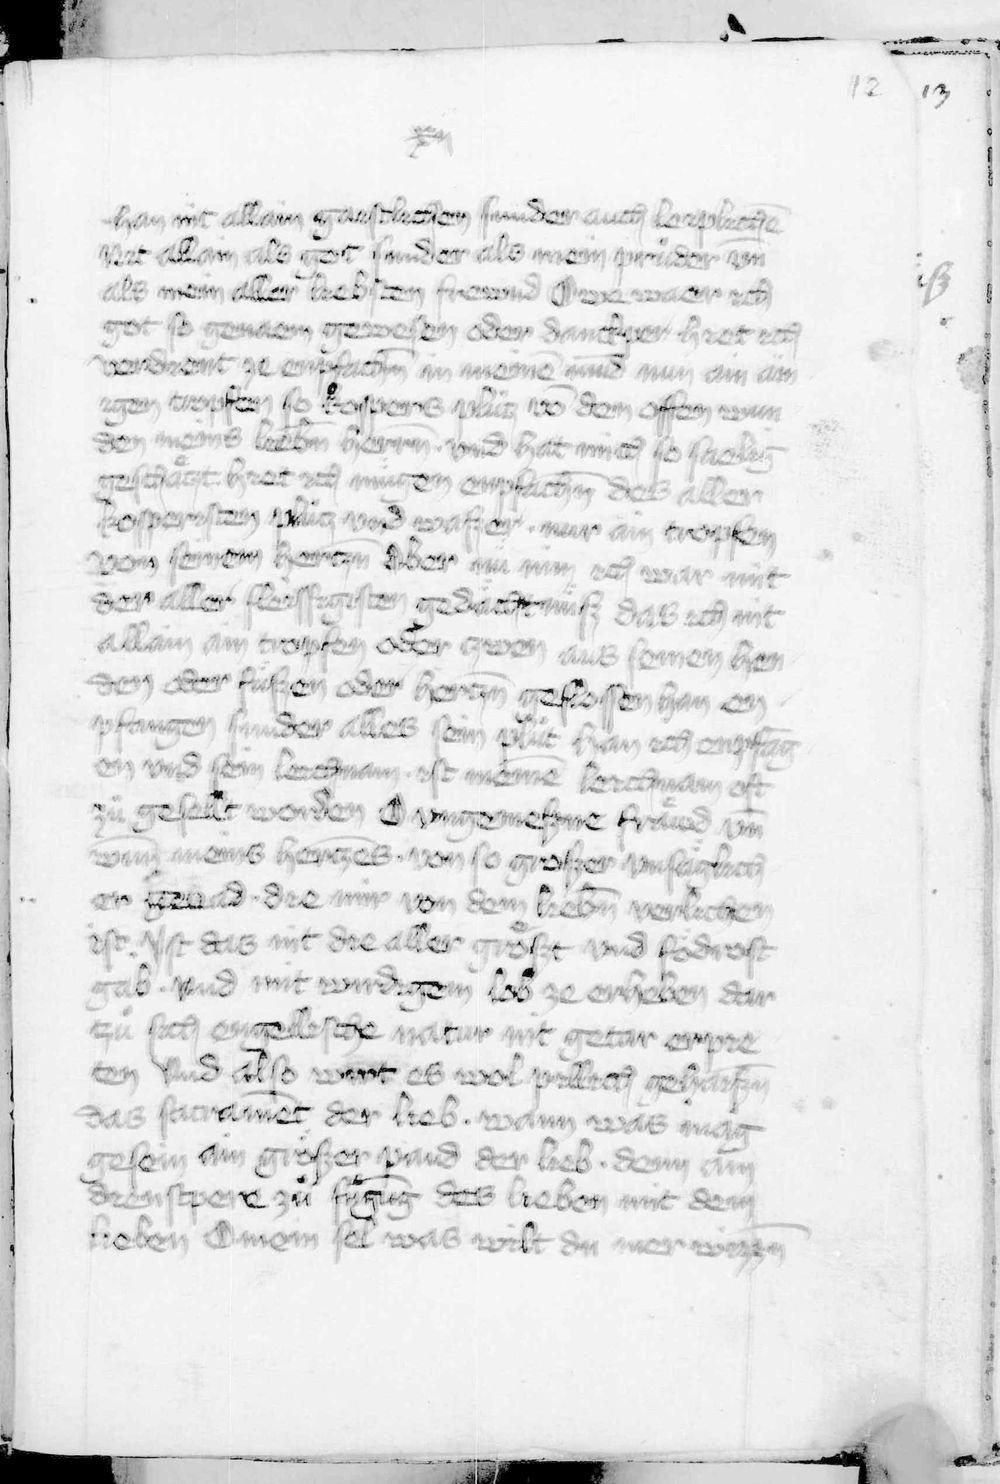 12 13
xij
han nit allain gaistlichen sunder auch leiplichē
Nit allain als got sunder als mein prüder vn̄
als mein aller liebsten frewnd O we waer ich
got so genaem gewesen oder danckper hiet ich
verdient ze enpfachn̄ in meinē mūd nun ain äin
igen tropfen so kospers plütz vō den offen wun
den meins liebn̄ herrn̄ · vnd hat mich so saelig
geschäczt hiet ich mügen enpfachn̄ des aller
kosperisten plütz vnd waſzer · nur ain tropfen
von seinem herczn̄ Aber nü nim ich war mit
der aller fleissigisten gedächtnüsz das ich nit
allain ain tropfen oder zwen aus seinen hen
den oder füszen oder herczn̄ geflossen han en
pfangen sunder alles sein plüt han ich enpfāg
en vnd sein leichnam · ist meinē leichnam oft
zü gesellt worden O vngemeszne fräwd vn̄
wun̄ meins herczes · von so groszer vnsäglich
er genad · die mir von dem liebn̄ verlichen
ist · Ist das nit die aller gröszt vnd födrost
gab · vnd mit wirdigem lob ze erheben dar
zü sich engellische natur nit getar erpie
ten Vnd also wirt es wol pillich gehaiszn̄
das sacramēt der lieb · wann was mag
gesein ain gröszer pand der lieb · denn ain
dienstpere zü fügūg des lieben mit dem
lieben O mein sel was wilt du mer wizzn̄